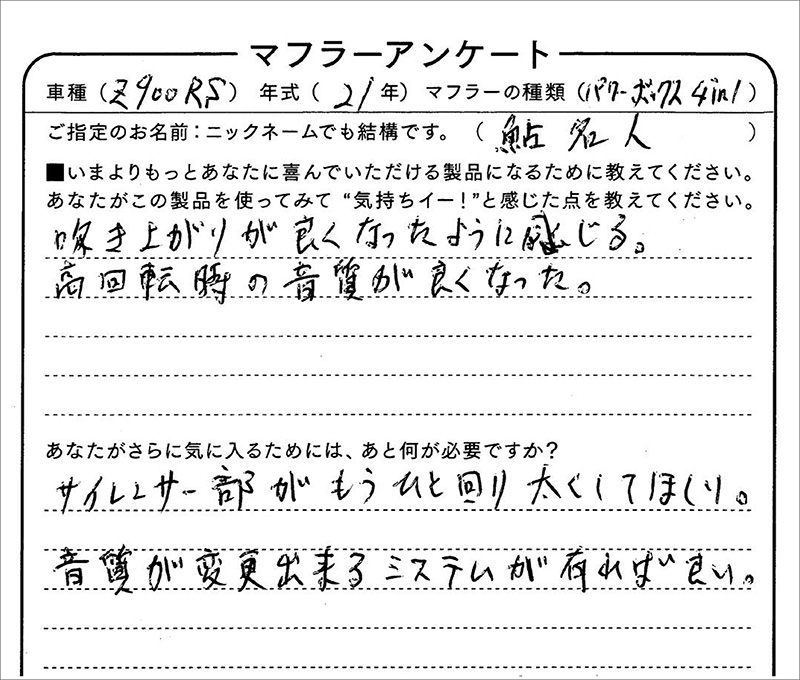 マフラーアンケート
車種(Z900RS) 年式(21年) マフラーの種類(パワーボックス4in1)
ご指定のお名前:ニックネームでも結構です。(鮎名人)
■いまよりもっとあなたに喜んでいただける製品になるために教えてください。
あなたがこの製品を使ってみて“気持ちイー!”と感じた点を教えてください。
吹き上がりが良くなったように感じる。
高回転時の音質が良くなった。
あなたがさらに気に入るためには、あと何が必要ですか?
サイレンサー部がもうひと回り太くしてほしい。
音質が変更出来るシステムが有れば良い。